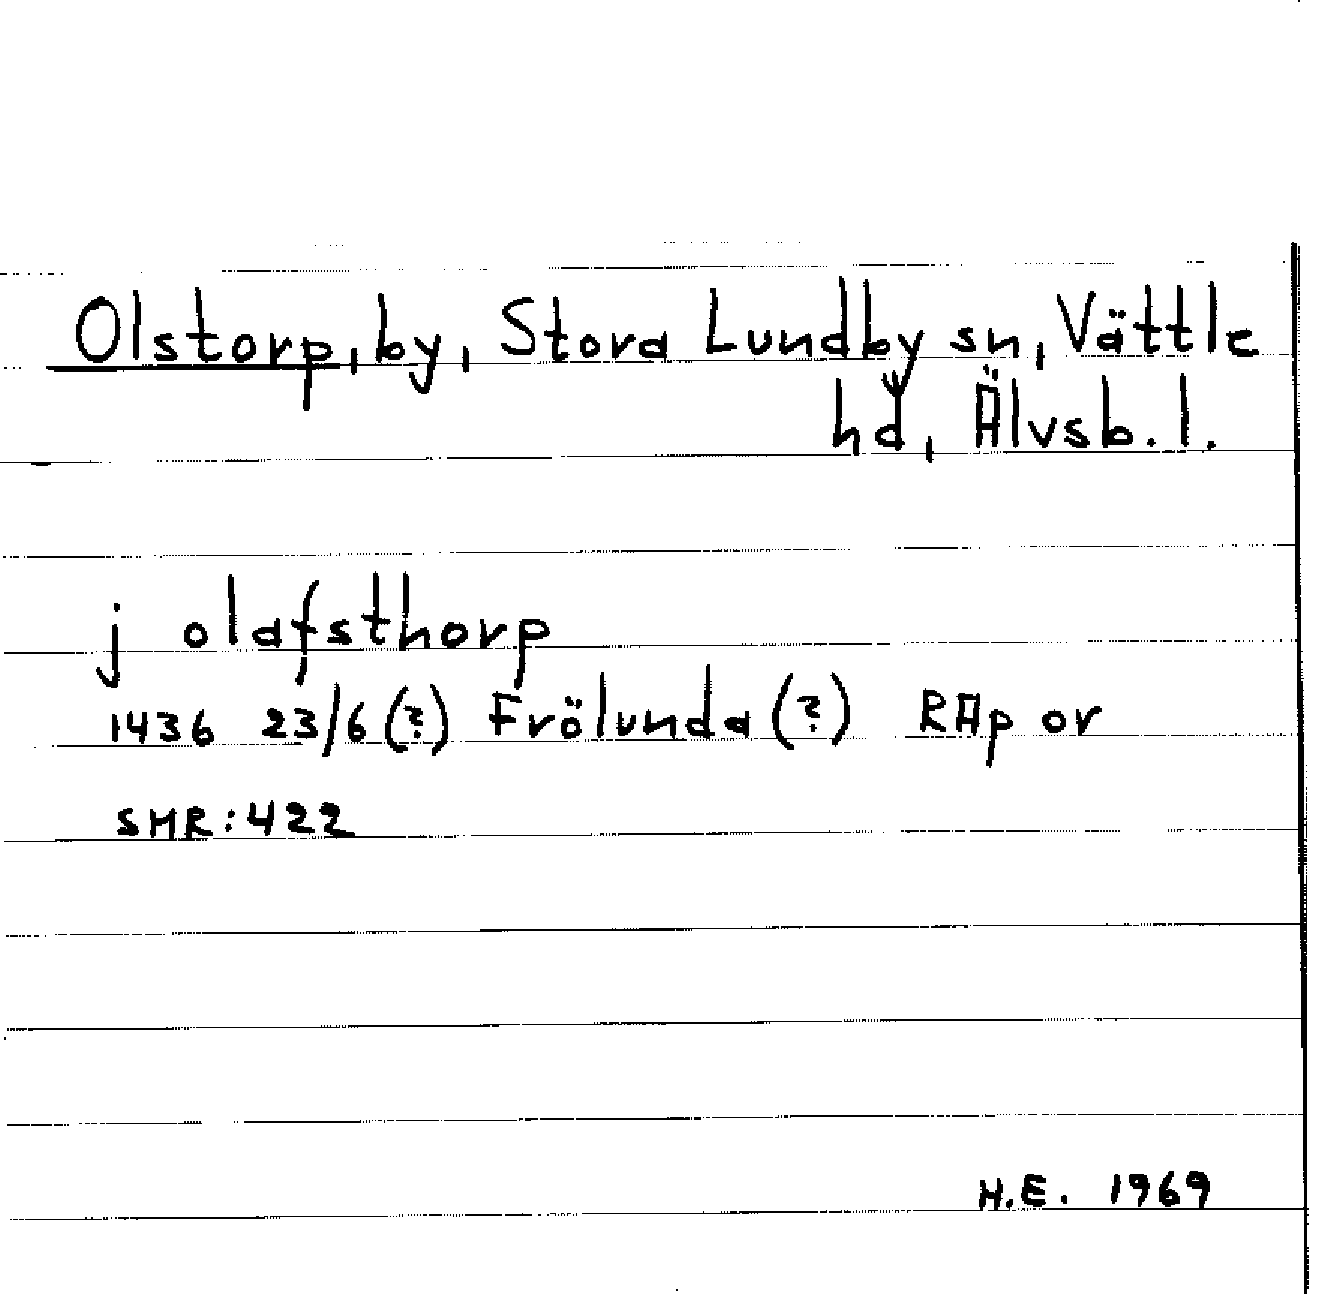 Olstorp, by, Stora Lundby sn, Vättle
hd, Älvsb. l.
j olafsthorp
1436 23/6 (?) Frölunda (?) RAp or
SMR: 422
H.E. 1969